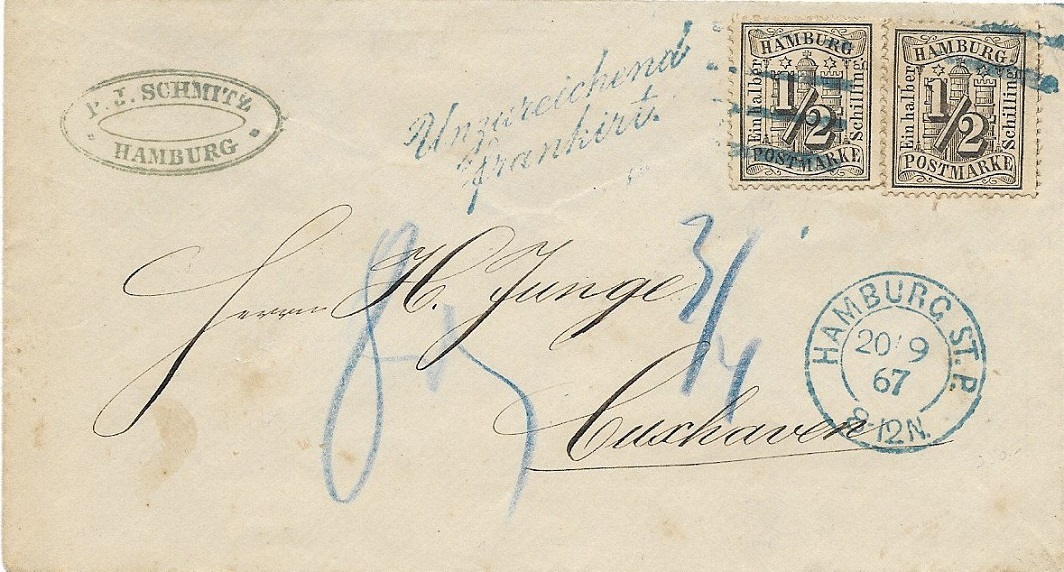 P. I. SCHMITZ
HAMBURG
Unzureichend
frankirt.
HAMBURG
Ein halber
1/2
Schilling
POSTMARKE
HAMBURG
Ein halber
1/2
Schilling
POSTMARKE
Herrn H. Junge
Cuxhaven
3/4
HAMBURG ST. P.
20/9
67
8-12 N.